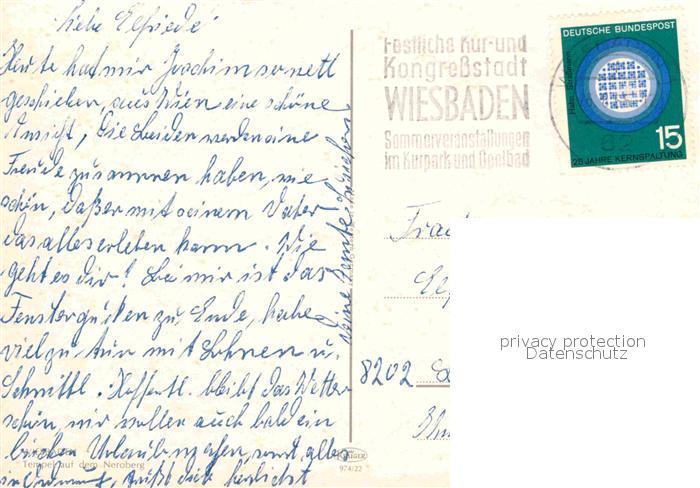 Liebe Elfriede
Heute hat mir Joachim so nett
geschrieben, aus Wien eine schöne
Ansicht, Die beiden werden eine
Freude zusammen haben, wie
schön, daß er mit seinem Vater
das alles erleben kann. Wie
geht es dir? Bei mir ist das
Fenstergucken zu Ende, habe
viel zu tun mit Bohnen u.
Schnittl. Hoffentl. bleibt das Wetter
schön, wir wollen auch bald ein
bischen Urlaub machen, sonst alles
in Ordnung, grüßt dich herzlichst
deine Tante
Tempel auf dem Neroberg
KRÜGER
974/22
Festliche Kur- und
Kongreßstadt
WIESBADEN
Sommerveranstaltungen
im Kurpark und Opelbad
62
DEUTSCHE BUNDESPOST
Hahn · Straßmann
15
25 JAHRE KERNSPALTUNG
8202
privacy protection
Datenschutz